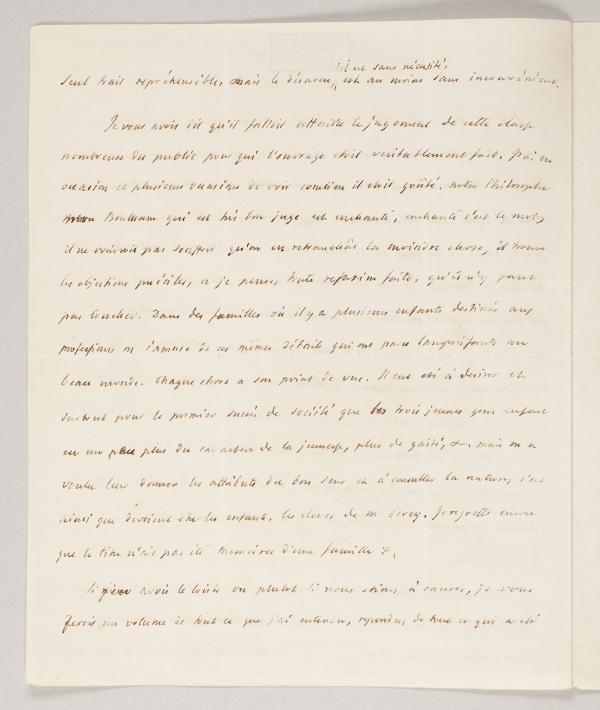 s'il est sans nécessité,
seul trait repréhensible, mais le désaveu est au moins sans inconvénient.
Je vous avois dit qu'il falloit attendre le jugement de cette classe
nombreuse du public pour qui l'ouvrage étoit véritablement fait. J'ai eu
occasion et plusieurs occasions de voir combien il étoit goûté. notre Philosophe
Bentham qui est très bon juge est enchanté, enchanté c'est le mot,
il ne voudroit pas souffrir qu'on en retranchât la moindre chose, il trouve
les objections puériles, et je pense, toute reflexion faite, qu'il n'y faut
pas toucher. Dans des familles où il y a plusieurs enfants destinés aux
professions on s'amuse de ces mêmes détails qui ont paru languissants au
beau monde. Chaque chose a son point de vue. Il eut été à desirer et
surtout pour le premier succès de société que les trois jeunes gens eussent
eu un peu plus du caractere de la jeunesse, plus de gaité, &c. mais on a
voulu leur donner les attributs du bon sens et à consulter la nature, c'est
ainsi que devroient être les enfants, les eleves de mr Percy. Je regrette encore
que le titre n'ait pas été memoires d'une famille &c.
Si j'en avois le loisir ou plutot si nous etions à causer, je vous
ferois un volume de tout ce que j'ai entendu, repondu, de tout ce qui a été